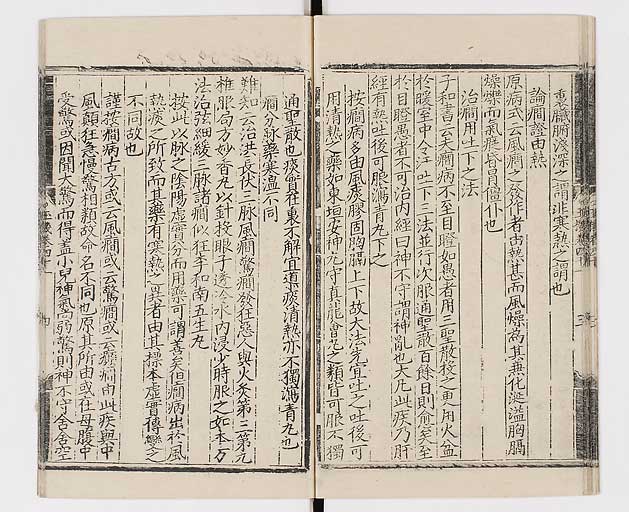 裏臟腑淺深之謂非寒熱之謂也
論癎證由熱
原病式云風癎之發作者由熱甚而風燥為其兼化涎溢胸膈
燥爍而瘈瘲昏冒僵仆也
治癎用吐下之法
子和書云夫癎病不至目瞪如愚者用三聖散投之更用火盆
於暖室中令汗吐下三法並行次服通聖散百餘日則愈矣至
於目瞪愚者不可治內經曰神不守謂神亂也大凡此疾乃肝
經有熱吐後可服瀉青丸下之
按癎病多由風痰膠固胸膈上下故大法先宜吐之吐後可
用清熱之藥如東垣安神丸守真龍會丸之類皆可服不獨
通聖散也痰實在裏不解宜導痰清熱亦不獨瀉青丸也
癎分脉藥寒溫不同
難知云治洪長伏三脉風癎驚癎發狂惡人與火灸第三第九
椎服局方妙香丸以針投眼子透冷水內浸少時服之如本方
法治弦細緩三脉諸癎似狂李和南五生丸
按此以脉之陰陽虛實分而用藥可謂善矣但癎病出於風
熱痰之所致而其藥有寒熱之異者由其標本虛實傳變之
不同故也
謹按癎病古方或云風癎或云驚癎或云癲癎由此疾與中
風顛狂急慢驚相類故命名不同也原其所由或在母腹中
受驚或因聞大驚而得盖小兒神氣尚弱驚則神不守舍舍空